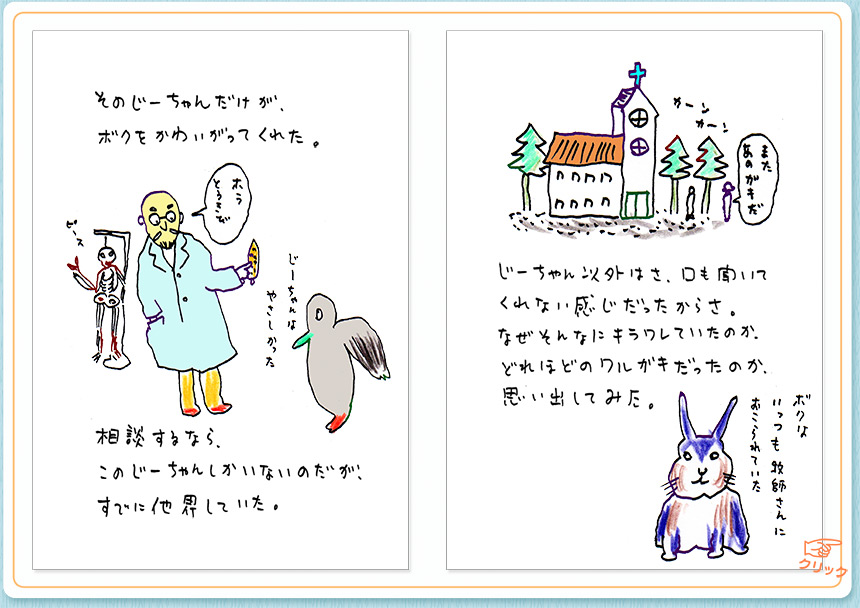 そのじーちゃんだけが、
ボクをかわいがってくれた。
ホラ
とうきび
ピース
じーちゃんは
やさしかった
相談するなら、
このじーちゃんしかいないのだが、
すでに他界していた。
カーン
カーン
また
あのガキだ
じーちゃん以外はさ、口も聞いて
くれない感じだったからさ。
なぜそんなにキラワレていたのか、
どれほどのワルガキだったのか、
思い出してみた。
ボクは
いっつも牧師さんに
おこられていた
クリック